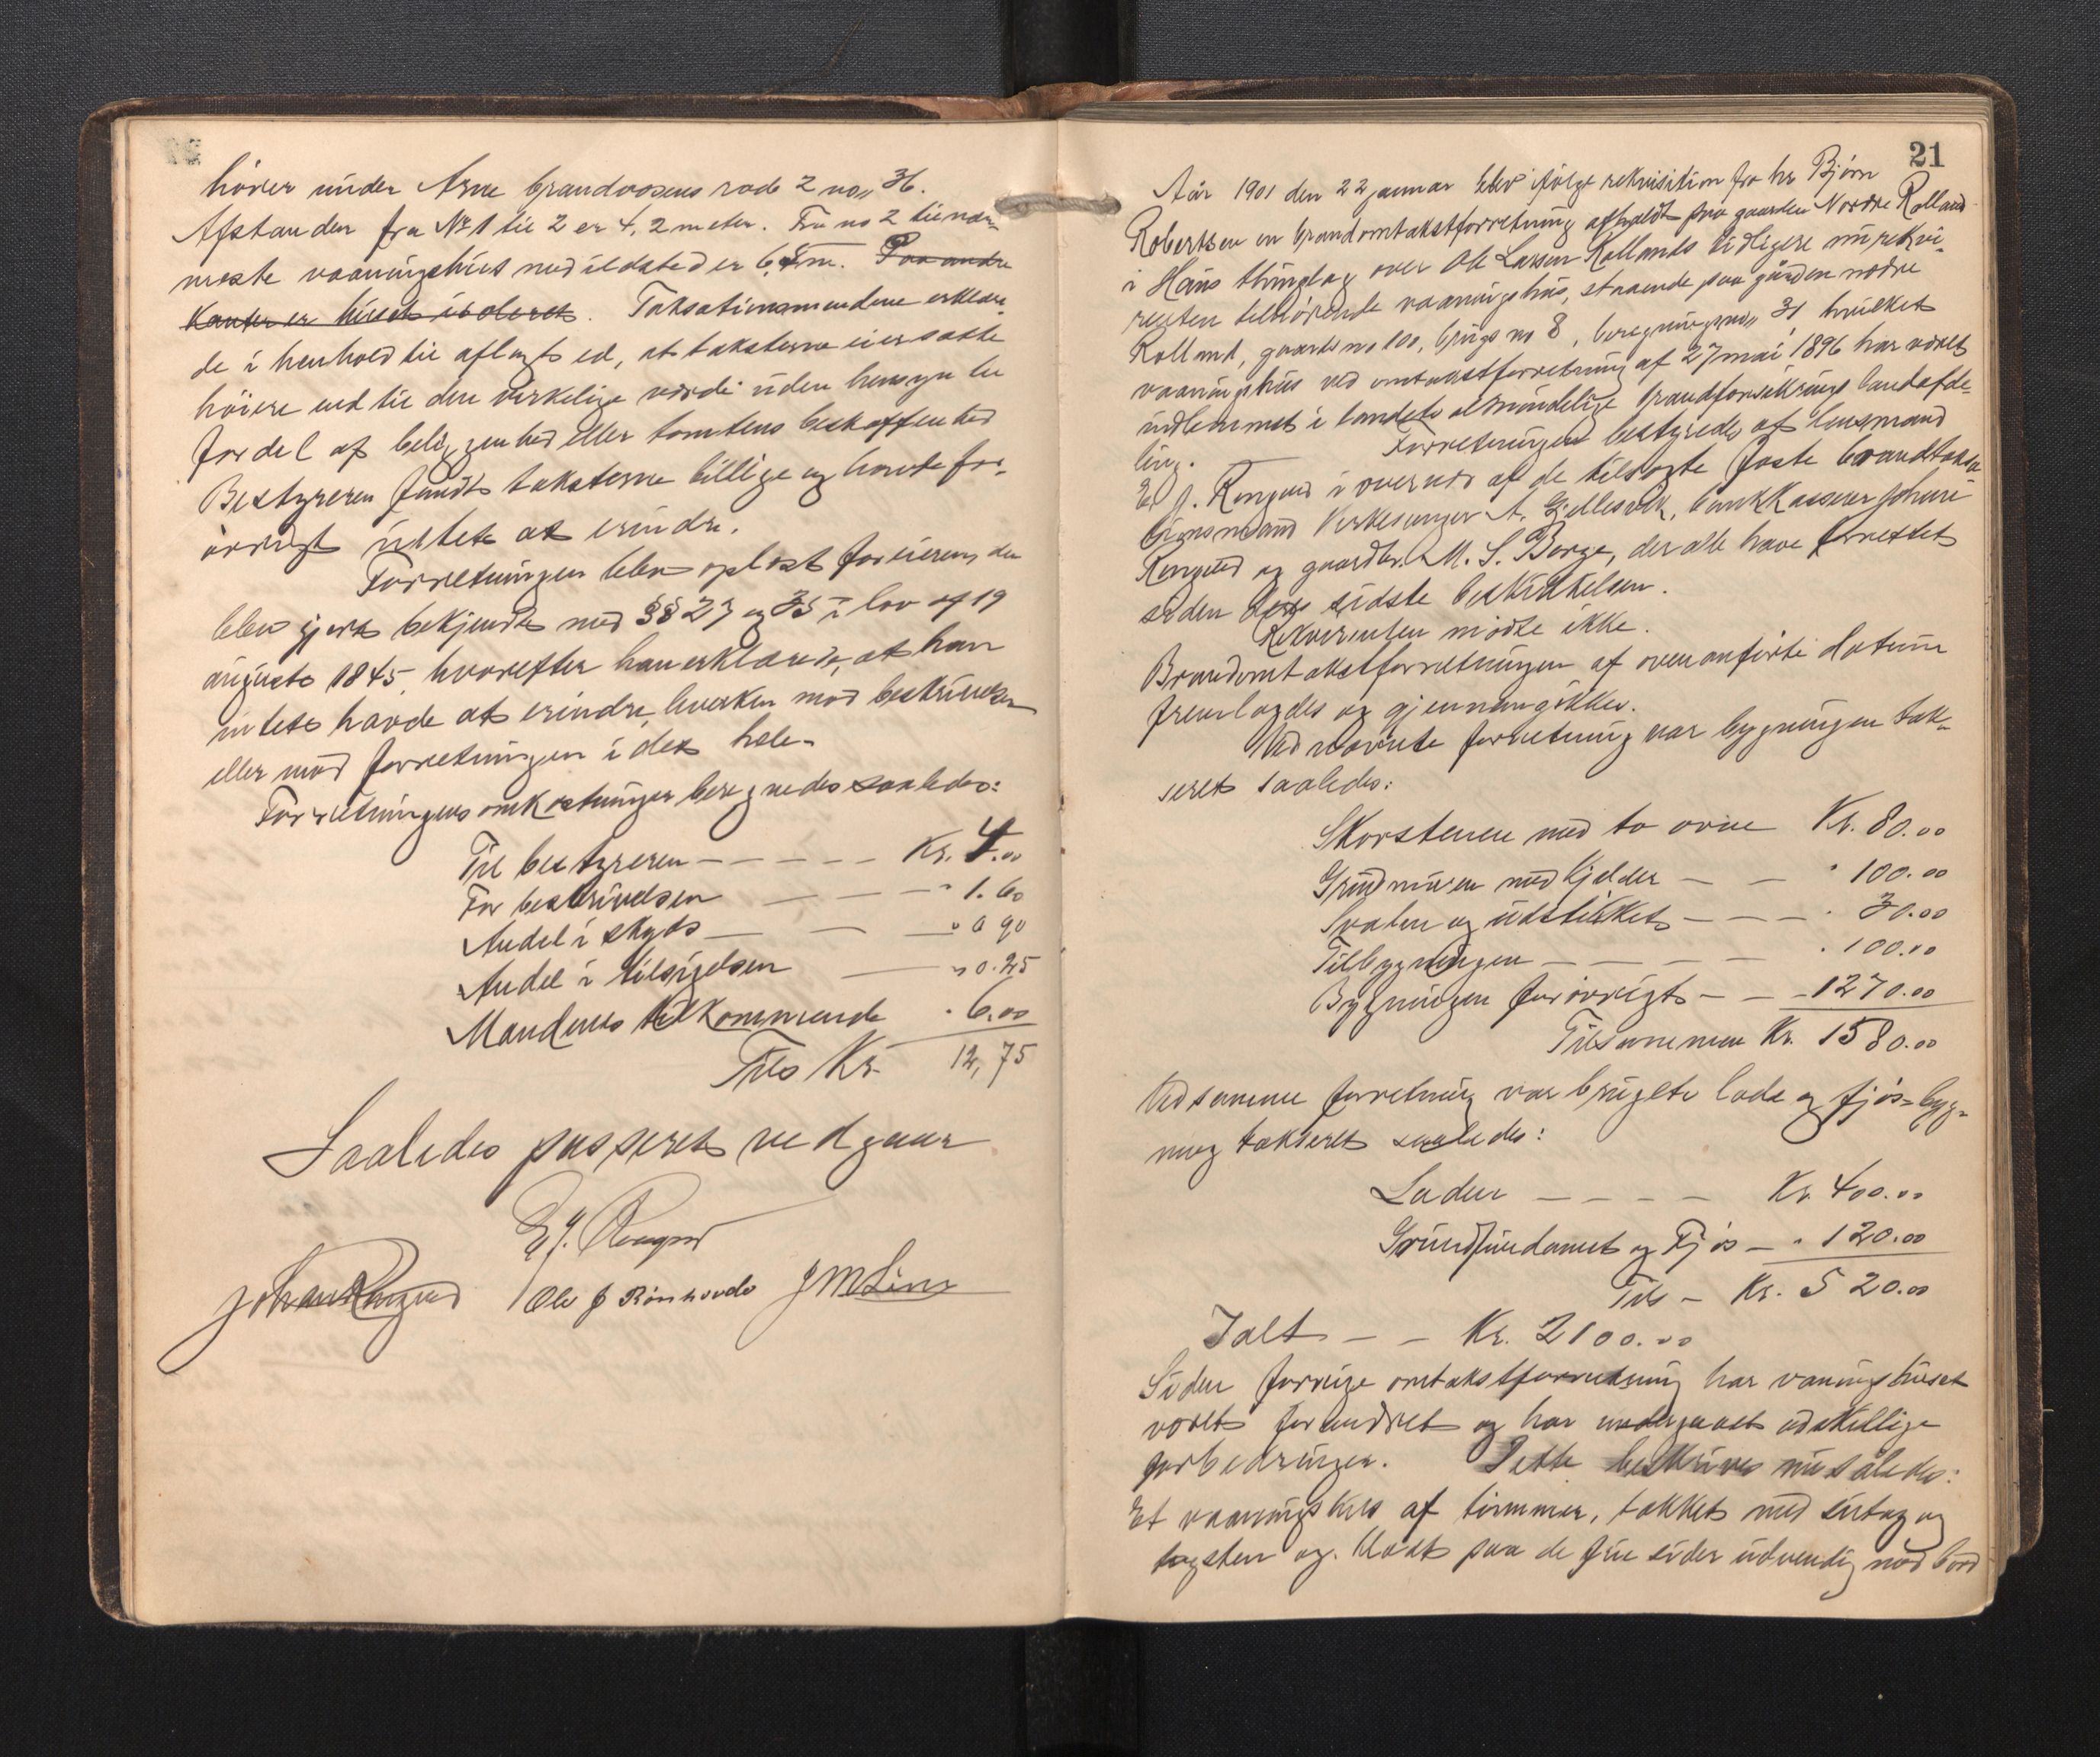 hörer under Arne brandvæsens rode 2 no,, 36.
Afstanden fra No 1 til 2 er 4,2 meter. Fra no 2 til nær-
meste vaaningshus med ildsted er 6,5 m. Paa andre
kanter er huset isoleret. Taksationsmændene erklære-
de i henhold til aflagt ed, at taksterne ei er satte
höiere end til den virkelige værdi uden hensyn til
fordel af beliggenhed eller tomtens beskaffenhed
Bestyreren fandt taksterne billige og havde for-
övrigt intet at erindre.
Forretningen blev oplæst for eieren, der
blev gjort bekjendt med §§ 27 og 35 i lov af 19
august 1845, hvorefter han erklærede, at han
intet havde at erindre, hverken mod beskrivelsen
eller mod forretningen i det hele.
Forretningens omkostninger beregnedes saaledes:
Til bestyreren — — — — — Kr. 4.00
For beskrivelsen — — — " 1.60
Andel i skyds — — — " 0 90
Andel i tilsigelsen — " 0.25
Mændenes tilkommende " 6.00
Tils Kr. 12,75
Saaledes passeret vedgaar
E. J. Rongved
Johan Rongved Ole J Rönhovde J M Linn
21
Aar 1901 den 22 januar blev ifölge rekvisition fra hr Björn
Robertsen en brandomtakstforretning afholdt paa gaarden Nordre Rolland
i Haus thinglag over Ole Larsen Rollands tidligere nu rekvi-
renten tilhörende vaaningshus, staaende paa gaarden nordre
Rolland, gaards no 100, brugs no 8, beregningsno,, 31 hvilket
vaaningshus ved omtakstforretning af 27 mai 1896 har været
indlemmet i landets almindelige brandforsikrings landafde-
ling. — Forretningen bestyredes af lensmand
E. J. Rongved i overvær af de tilsagte faste brandtaksa-
tionsmænd A. Gjellesvik, bankkasserer Johan
Rongved og gaardbr. M. S. Borge, der alle have forrettet
siden deres sidste beskikkelsen.
Rekvirenten mödte ikke.
Brandomtakstforretningen af ovenanförte datum
fremlagdes og gjennemgikkes.
Ved nævnte forretning var bygningen tak-
seret saaledes:
Skorstenen med to ovne Kr. 80.00
Grundmuren med kjelder — — " 100.00
Svalen og udstikket — — — " 30.00
Tilbygningen — — — — " 100.00
Bygningen forövrigt — — 1270.00
Tilsammen Kr. 1580.00
Ved samme forretning var brugets lade og fjös-byg-
ning takseret saaledes:
Laden — — — — Kr. 400.00
Grundfundament og Fjös — " 120.00
Tils — Kr. 520.00
Ialt — — Kr. 2100.00
Siden forrige omtakstforretning har vaningshuset
været forandret og har undergaaet adskillige
forbedringer. Dette beskrives nu således:
Et vaaningshus af tömmer, takket med sutag og
tagsten og klædt paa de fire sider udvendig med bord